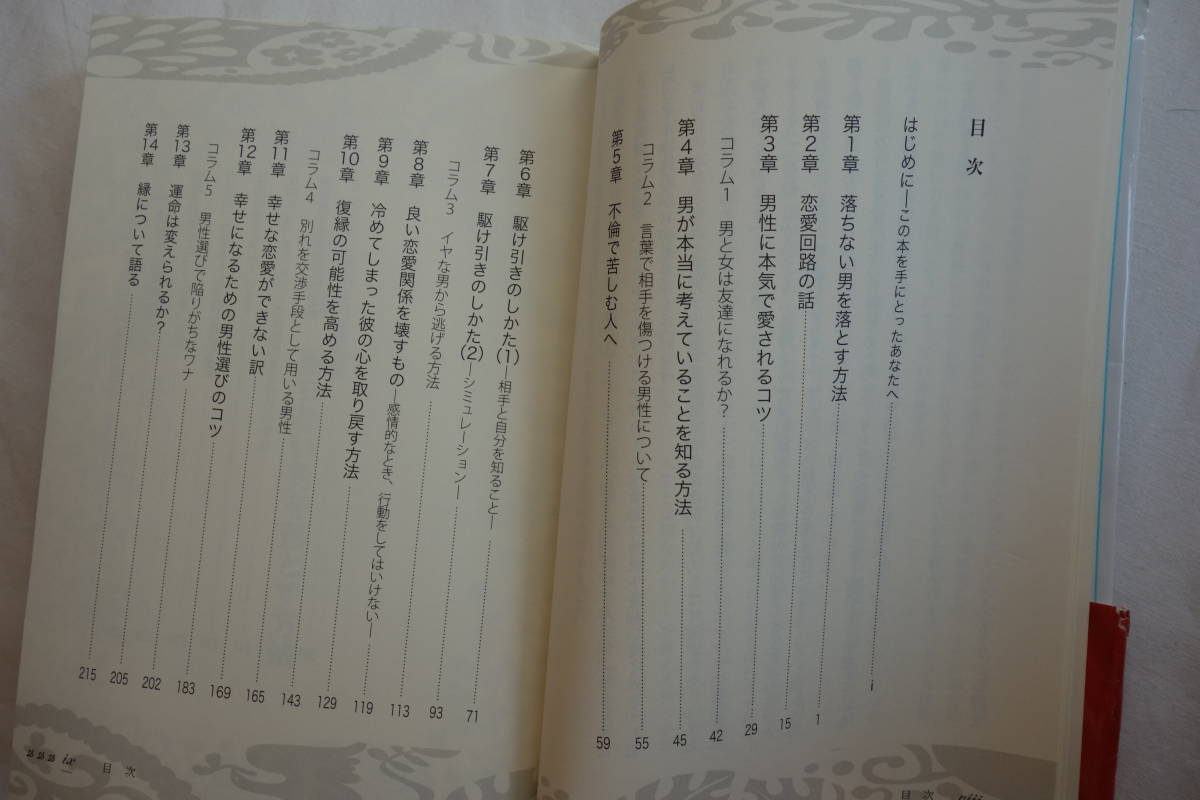 目次
はじめに―この本を手にとったあなたへ……i
第1章 落ちない男を落とす方法……1
第2章 恋愛回路の話……15
第3章 男性に本気で愛されるコツ……29
コラム1 男と女は友達になれるか？……42
第4章 男が本当に考えていることを知る方法……45
コラム2 言葉で相手を傷つける男性について……55
第5章 不倫で苦しむ人へ……59
目次 viii
第6章 駆け引きのしかた(1)―相手と自分を知ること―……71
第7章 駆け引きのしかた(2)―シミュレーション―……93
コラム3 イヤな男から逃げる方法……113
第8章 良い恋愛関係を壊すもの―感情的なとき、行動をしてはいけない―……119
第9章 冷めてしまった彼の心を取り戻す方法……129
第10章 復縁の可能性を高める方法……143
コラム4 別れを交渉手段として用いる男性……165
第11章 幸せな恋愛ができない訳……169
第12章 幸せになるための男性選びのコツ……183
コラム5 男性選びで陥りがちなワナ……202
第13章 運命は変えられるか？……205
第14章 縁について語る……215
ix 目次